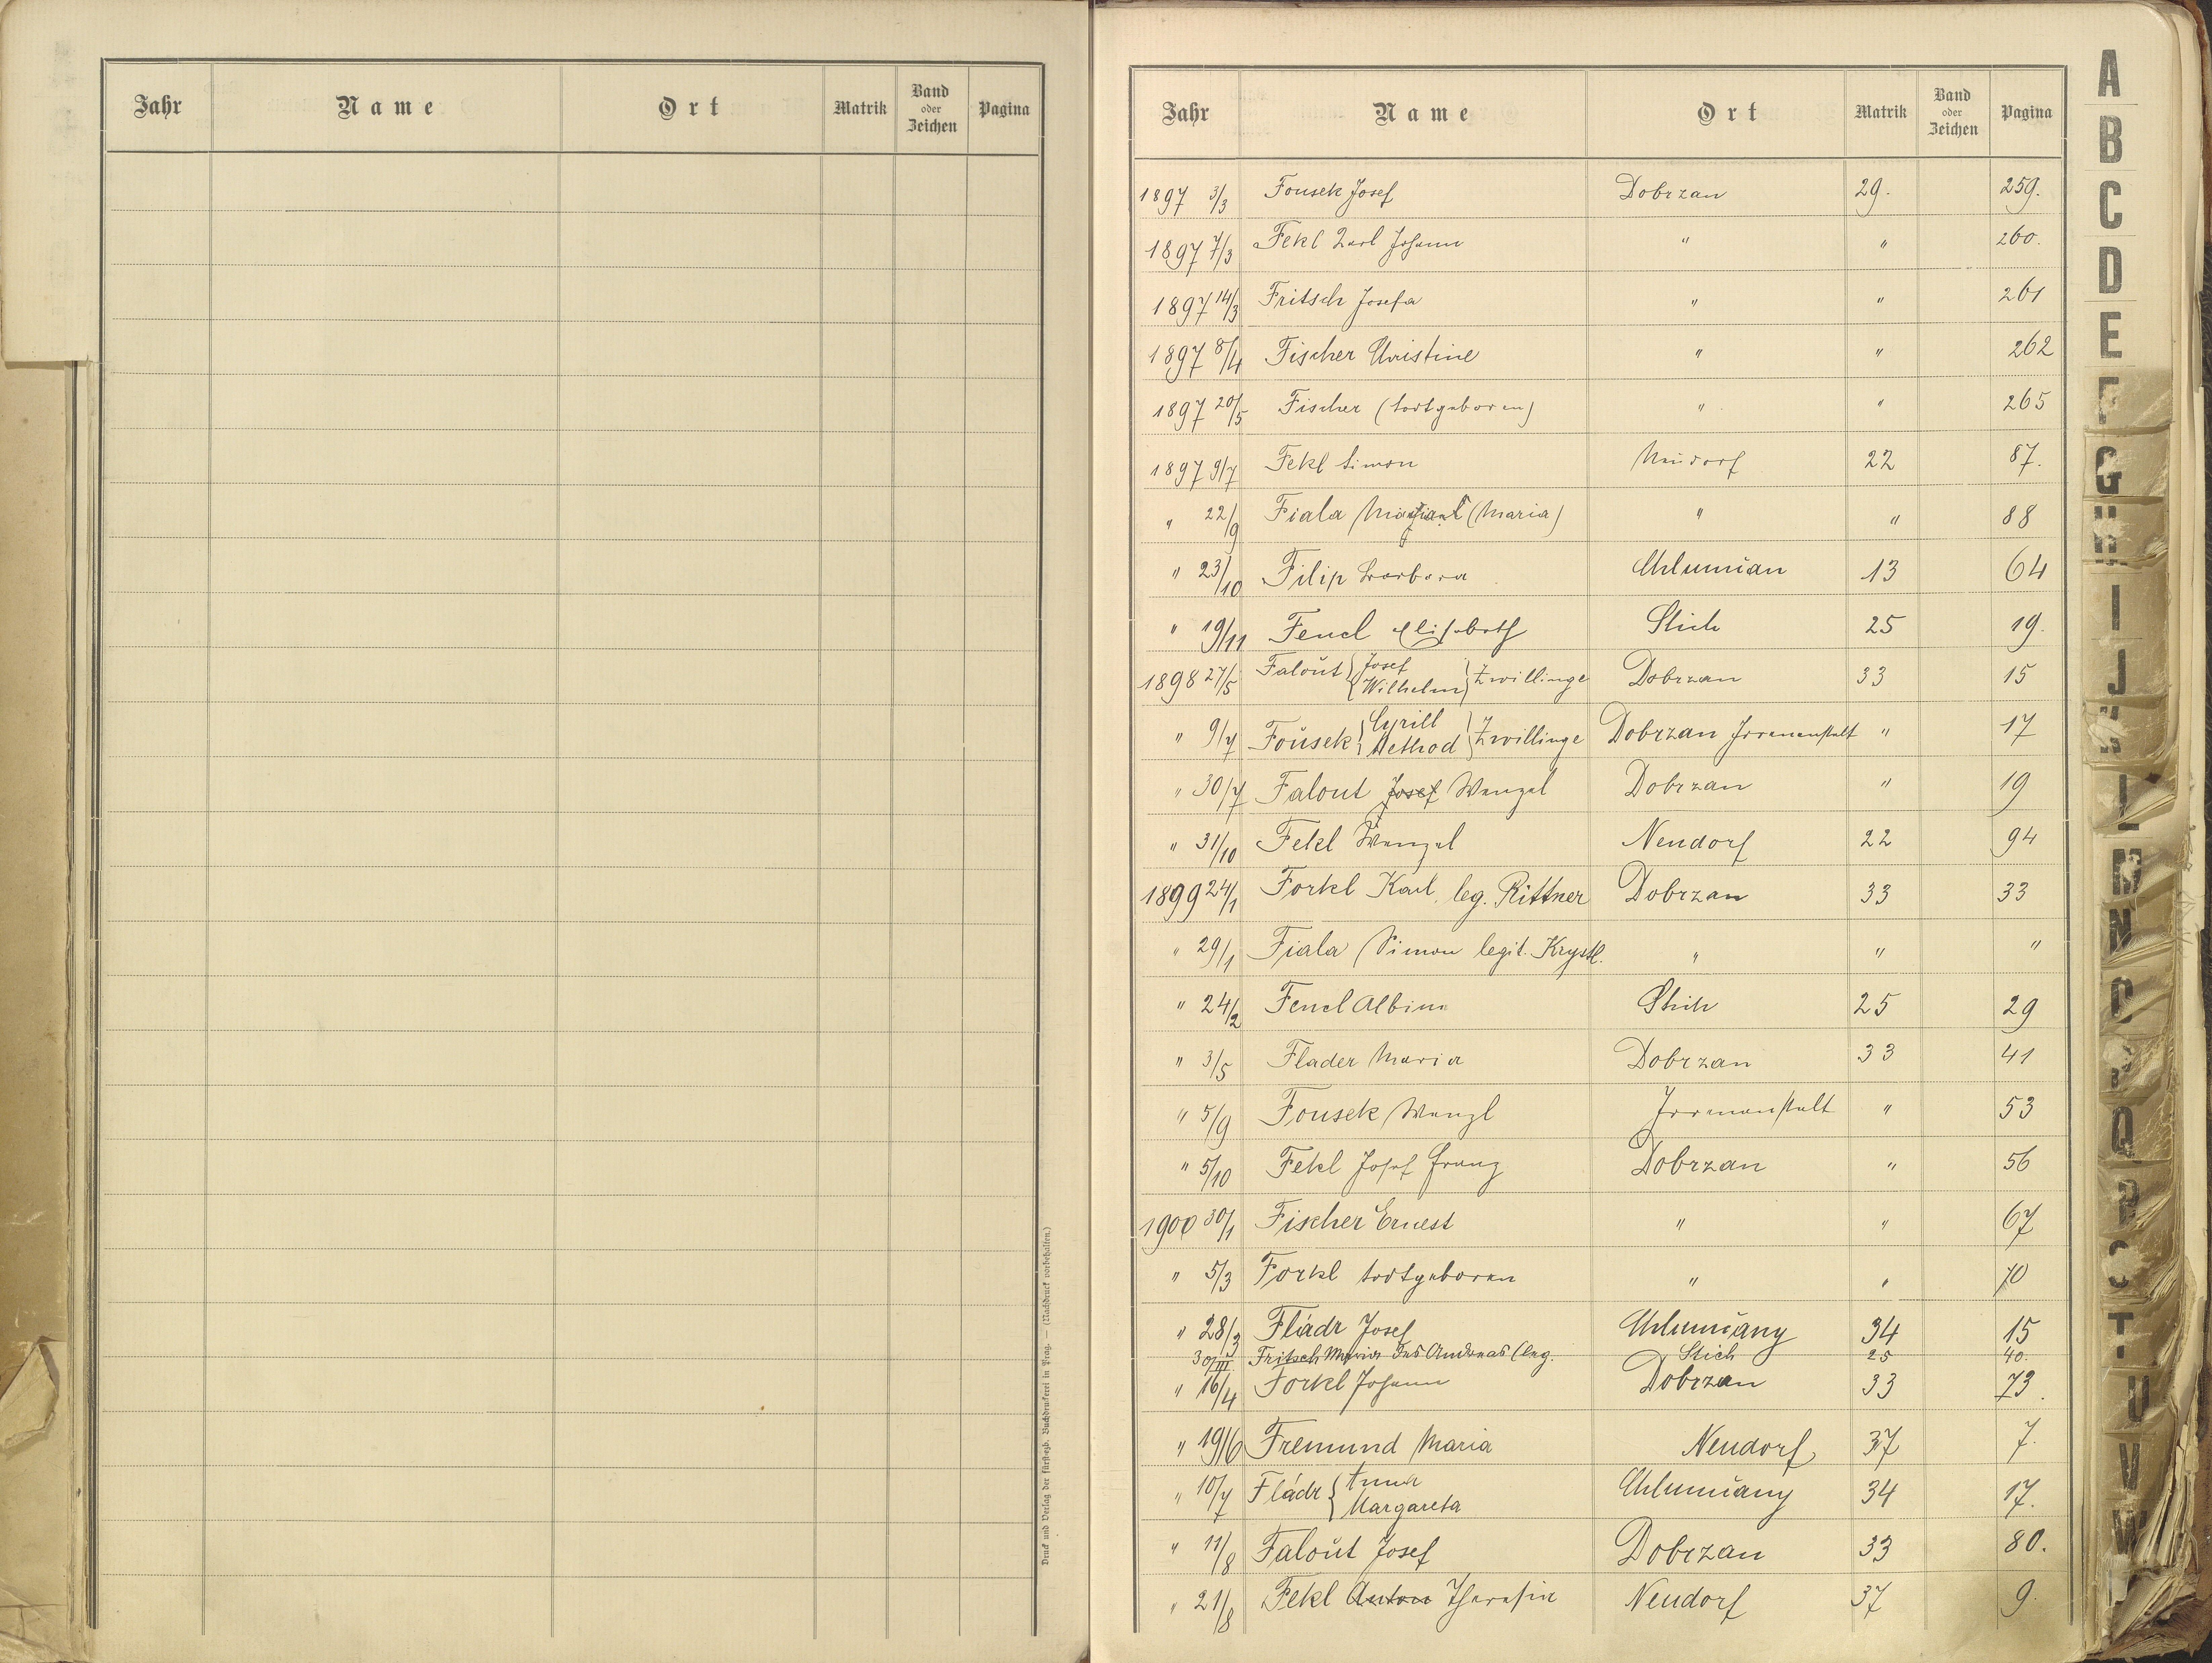 Jahr Name Ort Matrik Band oder Zeichen Pagina
Druck und Verlag der fürsterzb. Buchdruckerei in Prag. — (Nachdruck vorbehalten.)
Jahr Name Ort Matrik Band oder Zeichen Pagina
1897 3/3 Fousek Josef Dobrzan 29. 259.
1897 7/3 Fekl Karl Johann " " 260.
1897 14/3 Fritsch Josefa " " 261
1897 8/4 Fischer Christine " " 262
1897 20/5 Fischer (todtgeboren) " " 265
1897 9/7 Fekl Simon Neudorf 22 87.
" 22/9 Fiala (Maria) " " 88
" 23/10 Filip Barbara Chlumčan 13 64
" 19/11 Fencl Elisabeth Stich 25 19.
1898 27/5 Faloŭt { Josef Wilhelm } Zwillinge Dobrzan 33 15
" 9/7 Foŭsek { Cyrill Method } Zwillinge Dobrzan Irrenanstalt " 17
" 30/7 Falout Josef Wenzel Dobrzan " 19
" 31/10 Fekl Wenzel Neudorf 22 94
1899 24/1 Forkl Karl, leg. Rittner Dobrzan 33 33
" 29/1 Fiala Simon legit. Krystl. " " "
" 24/2 Fencl Albina Stich 25 29
" 3/5 Flader Maria Dobrzan 33 41
" 5/9 Fousek Wenzl Irrenanstalt " 53
" 5/10 Fekl Josef Franz Dobrzan " 56
1900 30/1 Fischer Ernest " " 67
" 5/3 Forkl todtgeboren " " 70
" 28/3 Fládr Josef Chlumčany 34 15
30/III Fritsch Maria des Andreas (leg. Stich 25 40.
" 16/4 Forkl Johann Dobrzan 33 73.
" 19/6 Fremund Maria Neudorf 37 7.
" 10/7 Fládr { Anna Margareta Chlumčany 34 17.
" 11/8 Faloŭt Josef Dobrzan 33 80.
" 21/8 Fekl Anton Theresia Neudorf 37 9.
A
B
C
D
E
F
G
H
I
J
K
L
M
N
O
P
Q
R
S
T
U
V
W